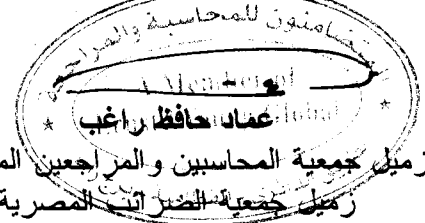 متضامنون للمحاسبة والمراجعة
عماد حافظ راغب
زميل جمعية المحاسبين والمراجعين
زميل جمعية الضرائب المصرية